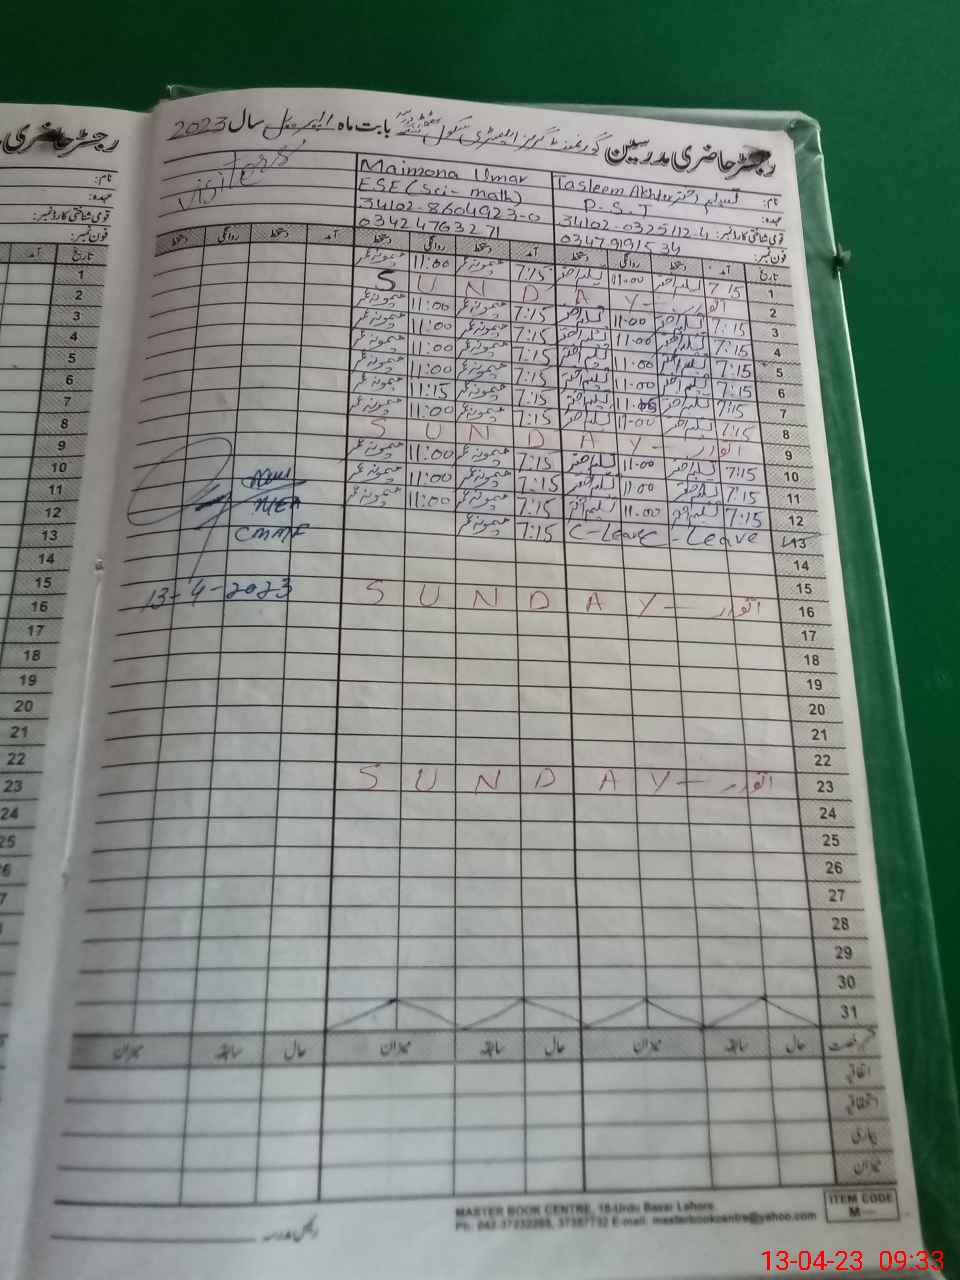 رجسٹر حاضری مدرسین گورنمنٹ گرلز ایلیمنٹری سکول بابت ماہ اپریل سال 2023
رجسٹر حاضری
نام: Tasleem Akhter تسلیم اختر Maimona Umar Visitors
عہدہ: P.S.T ESE (Sci-math)
قومی شناختی کارڈ نمبر: 34102-0325112-4 34102-8604923-0
فون نمبر: 03479191534 03424763271
تاریخ آمد دستخط روانگی دستخط آمد دستخط روانگی دستخط آمد دستخط روانگی دستخط
1 7:15 تسلیم اختر 11:00 تسلیم اختر 7:15 میمونہ عمر 11:00 میمونہ عمر
2 SUNDAY — اتوار
3 7:15 تسلیم اختر 11:00 تسلیم اختر 7:15 میمونہ عمر 11:00 میمونہ عمر
4 7:15 تسلیم اختر 11:00 تسلیم اختر 7:15 میمونہ عمر 11:00 میمونہ عمر
5 7:15 تسلیم اختر 11:00 تسلیم اختر 7:15 میمونہ عمر 11:00 میمونہ عمر
6 7:15 تسلیم اختر 11:00 تسلیم اختر 7:15 میمونہ عمر 11:00 میمونہ عمر
7 7:15 تسلیم اختر تسلیم اختر 7:15 میمونہ عمر 11:15 میمونہ عمر
8 7:15 تسلیم اختر 11:00 تسلیم اختر 7:15 میمونہ عمر 11:00 میمونہ عمر
9 SUNDAY — اتوار
10 7:15 تسلیم اختر 11:00 تسلیم اختر 7:15 میمونہ عمر 11:00 میمونہ عمر
11 7:15 تسلیم اختر 11:00 تسلیم اختر 7:15 میمونہ عمر 11:00 میمونہ عمر
12 7:15 تسلیم اختر 11:00 تسلیم اختر 7:15 میمونہ عمر 11:00 میمونہ عمر
13 C-Leave - Leave 7:15 میمونہ عمر
MEA
14
15
13-4-2023
16 SUNDAY — اتوار
17
18
19
20
21
22
23 SUNDAY — اتوار
24
25
26
27
28
29
30
31
قسم رخصت حال سابقہ میزان حال سابقہ میزان حال سابقہ میزان
اتفاقیہ
استحقاقیہ
بیماری
میزان
MASTER BOOK CENTRE, 18-Urdu Bazar Lahore.
Ph: 042-37232265, 37357732 E-mail: masterbookcentre@yahoo.com
ITEM CODE
M—
رئیس مدرسہ
نام:
عہدہ:
قومی شناختی کارڈ نمبر:
فون نمبر:
تاریخ آمد
1
2
3
4
5
6
7
8
9
10
11
12
13
14
15
16
17
18
19
20
21
22
23
24
25
13-04-23 09:33